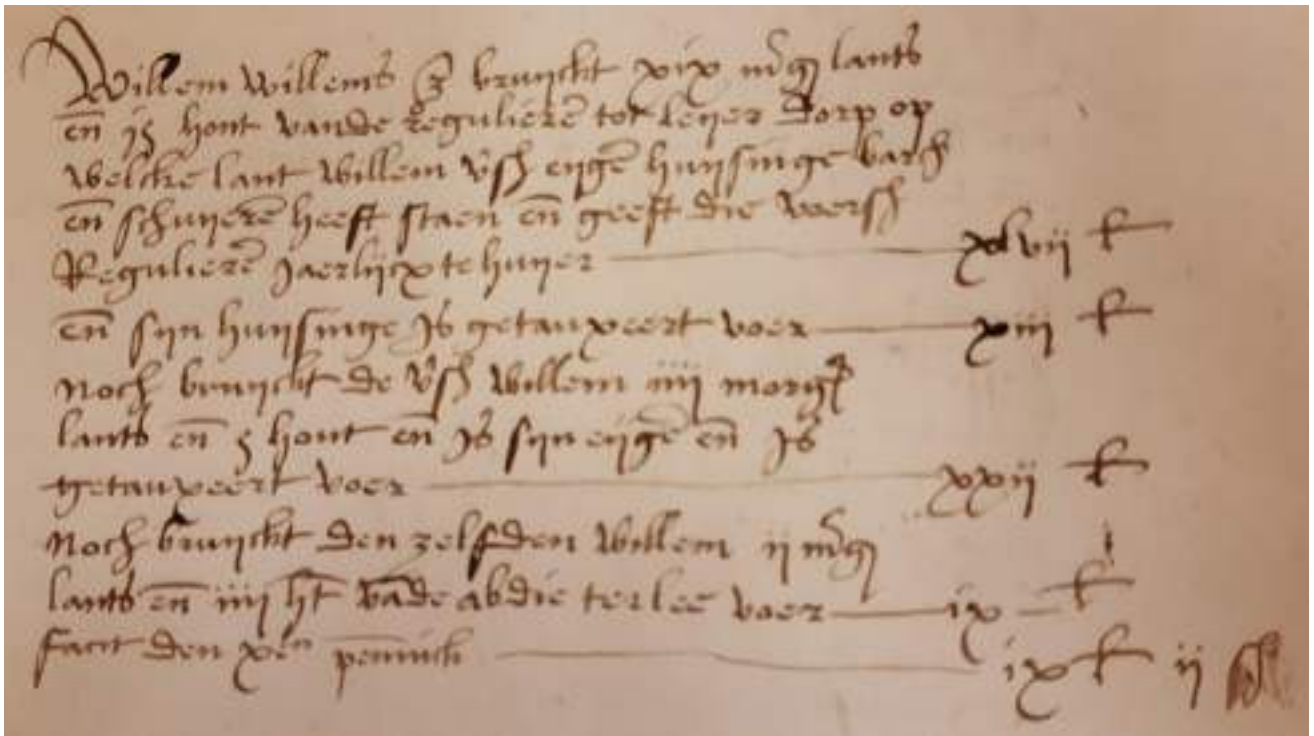 Willem willems z bruyckt xix mrgn lants
en is hont vande Regulieren tot leyer dorp op
welcke lant willem vsz eygen huysinge barch
en schuyeren heeft staen en geeft die voersz
Regulieren Jaerlycx te huyer xlvii £
en syn huysinge Is getauxeert voer xiii £
Noch bruyckt de vsz willem iiii morgen
lants en 5 hont en Is syn eygen en Is
getauxeert voer xxii £
Noch bruyckt den zelfden willem ii mrgn
lants en iiii ht vade abdie ter lee voer ix £
facit den xen pennick ix £ ii